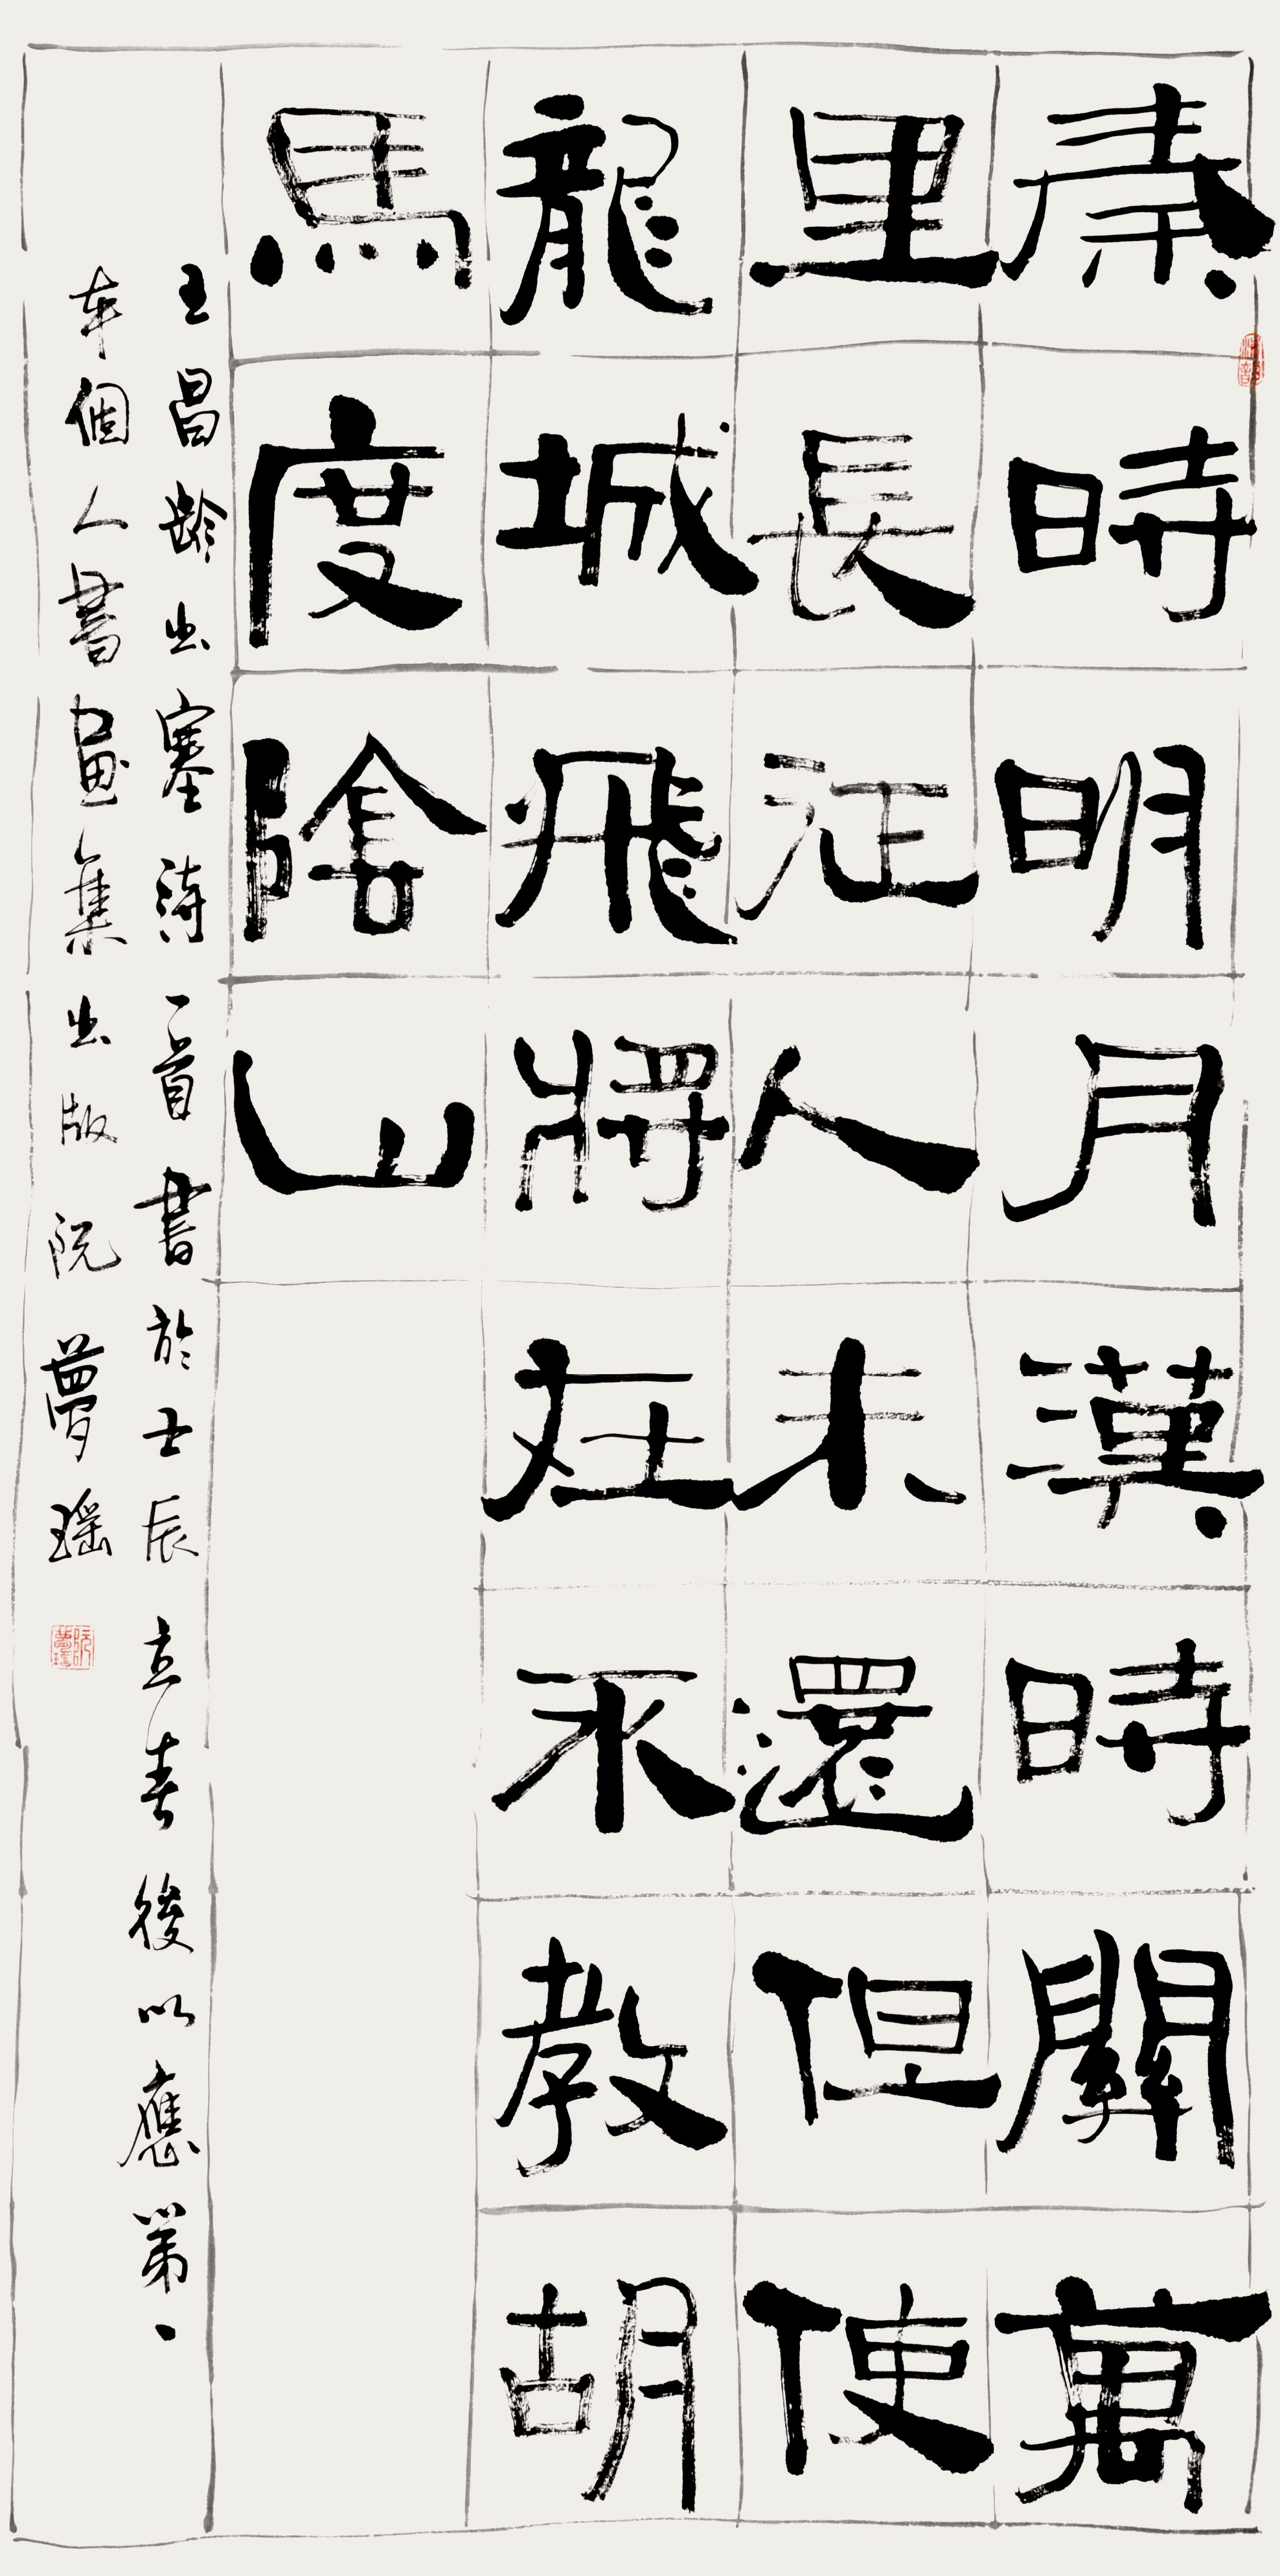 秦時明月漢時關萬
里長征人未還但使
龍城飛將在不教胡
馬度陰山
王昌齡出塞詩一首書於壬辰立春後以應第一
本個人書畫集出版阮夢瑶
阮夢瑶